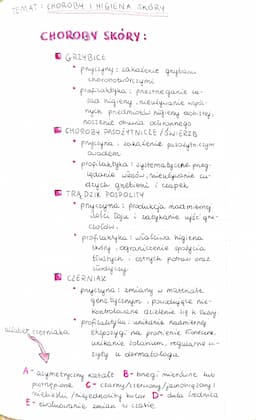 TEMAT: CHOROBY I HIGIENA SKÓRY
CHOROBY SKÓRY:
GRZYBICE
• przyczyny: zakażenie grzybami
chorobotwórczymi
• profilaktyka: przestrzeganie za-
sad higieny, nieużywanie wspól-
nych przedmiotów higieny osobistej,
noszenie obuwia ochronnego
CHOROBY PASOŻYTNICZE/ŚWIERZB
• przyczyna: zakażenie pasożytniczym
owadem
• profilaktyka: systematyczne prze-
glądanie włosów, nieużywanie cu-
dzych grzebieni i czapek
TRĄDZIK POSPOLITY
• przyczyna: produkcja nadmiernej
ilości łoju i zatykanie ujść gru-
czołów.
• profilaktyka: właściwa higiena
skóry, ograniczenie spożycia
tłustych i ostrych potraw oraz
słodyczy
CZERNIAK
• przyczyna: zmiany w materiale
genetycznym, powodujące nie-
kontrolowane dzielenie się k. skóry
• profilaktyka: unikanie nadmiernej
ekspozycji na promienie słoneczne,
unikanie solarium, regularne wi-
zyty u dermatologa
A - asymetryczny kształt B - brzegi nierówne lub
postrzępione C - czarny/czerwony/
niebieski/niejednolity kolor D - duża średnica
E - ewoluowanie zmian w czasie